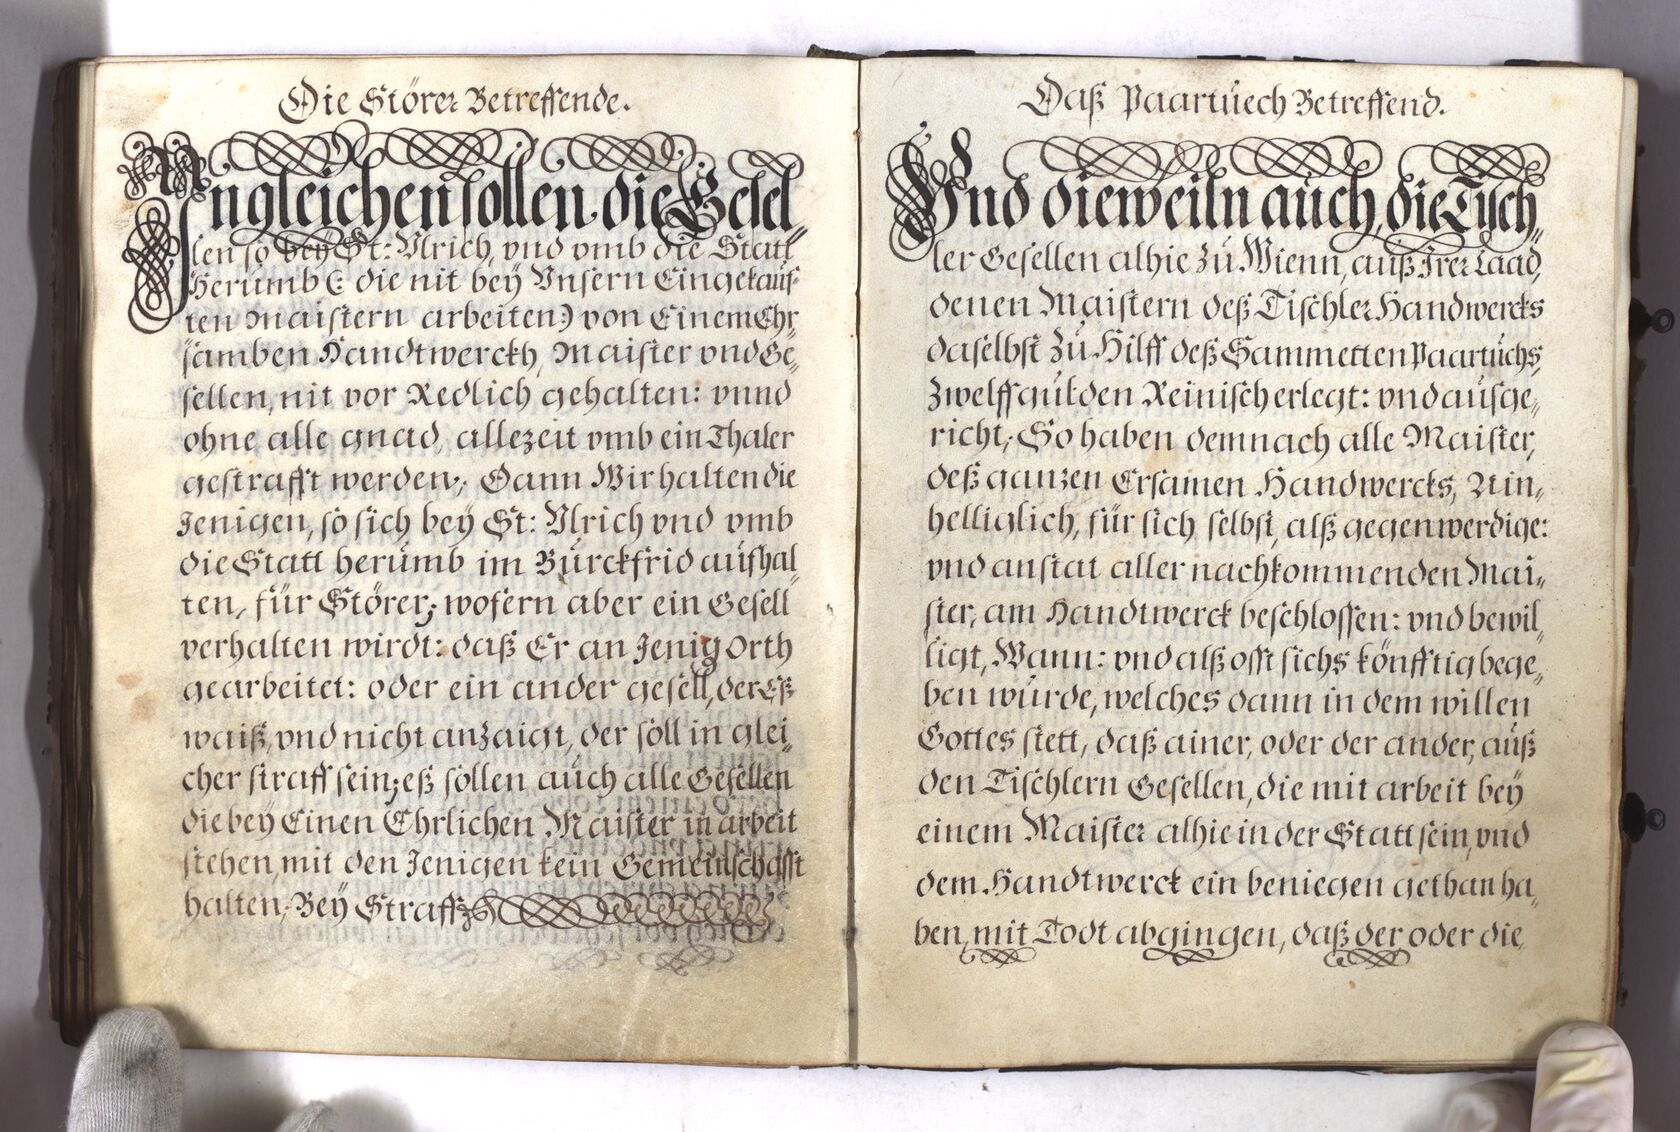 Die Störer Betreffende.
Ingleichen sollen die Gesel„
len so bey St: Ulrich, vnd vmb die Statt
Herumb (: die nit bey Vnsern Eingekauf„
ten Maistern arbeiten:) von Einem Ehr„
samben Handtwerckh, Maister vnd Ge„
sellen, nit vor Redlich gehalten: vnnd
ohne alle gnad, allezeit vmb ein Thaler
gestrafft werden; Dann Wir halten die
Jenigen, so sich bey St: Ulrich vnd vmb
die Statt herumb im Burckfrid aufhal„
ten, für Störer; wofern aber ein Gesell
verhalten wirdt: daß Er an Jenig Orth
gearbeitet: oder ein ander gesell, der Eß
waiß, vnd nicht anzaigt, der soll in glei„
cher straff sein; eß sollen auch alle Gesellen
die bey Einen Ehrlichen Maister in arbeit
stehen, mit den Jenigen kein Gemeinschafft
halten, Bey Straff
Daß Paartuech Betreffend.
Und dieweiln auch, die Tisch„
ler Gesellen alhie Zu Wienn, auß Irer Laad,
denen Maistern deß Tischler Handwercks
daselbst Zu Hilff deß Sammetten Paartuchs,
Zwelff gulden Reinisch erlegt: vnd ausge„
richt; So haben demnach alle Maister,
deß ganzen Ersamen Handwercks, Ain„
helliglich, für sich selbst, alß gegenwerdige:
vnd anstat aller nachkommenden Mai„
ster, am Handtwerck beschlossen: vnd bewil„
ligt, Wann: vnd alß offt sichs könfftig bege„
ben würde, welches dann in dem willen
Gottes stett, daß ainer, oder der ander, auß
den Tischlern Gesellen, die mit arbeit bey
einem Maister alhie in der Statt sein, vnd
dem Handtwerck ein beniegen gethan ha„
ben, mit Todt abgingen, daß der oder die